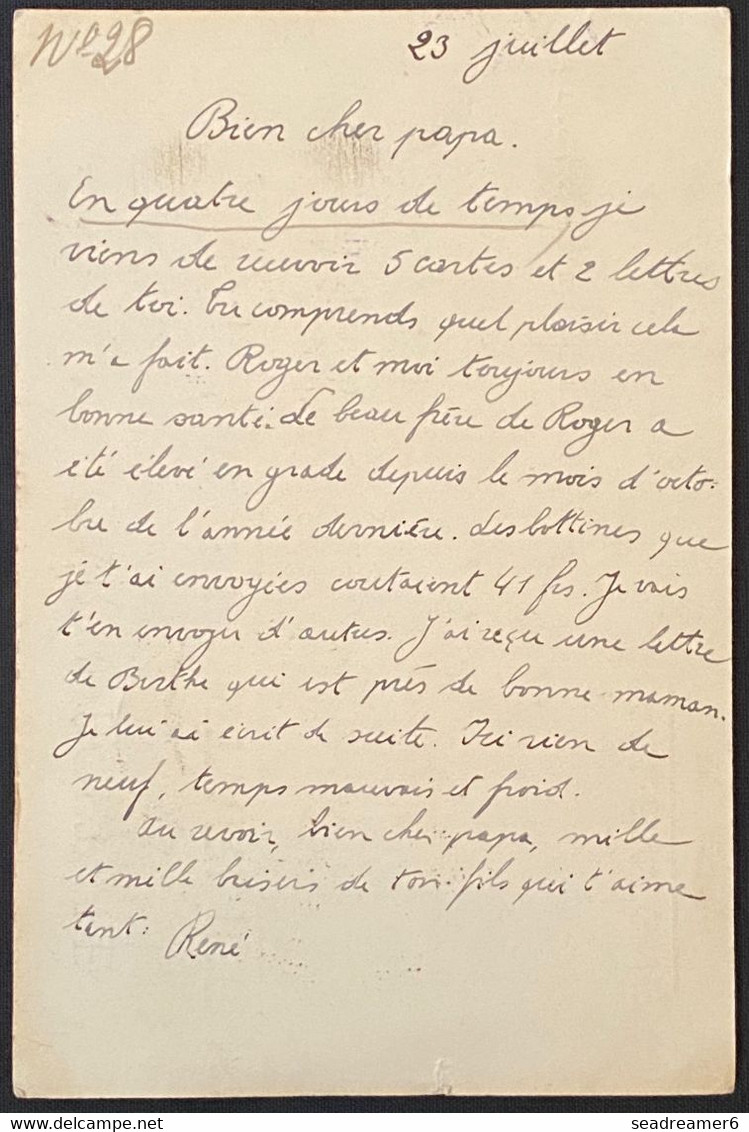 N° 28
23 juillet
Bien cher papa.
En quatre jours de temps je
viens de recevoir 5 cartes et 2 lettres
de toi. Tu comprends quel plaisir cela
m'a fait. Roger et moi toujours en
bonne santé. Le beau frère de Roger a
été élevé en grade depuis le mois d'octo-
bre de l'année dernière. Les bottines que
je t'ai envoyées coutaient 41 frs. Je vais
t'en envoyer d'autres. J'ai reçu une lettre
de Berthe qui est près de bonne-maman.
Je lui ai écrit de suite. Ici rien de
neuf, temps mauvais et froid.
Au revoir, bien cher papa, mille
et mille baisers de ton fils qui t'aime
tant.
René
seadreamer6